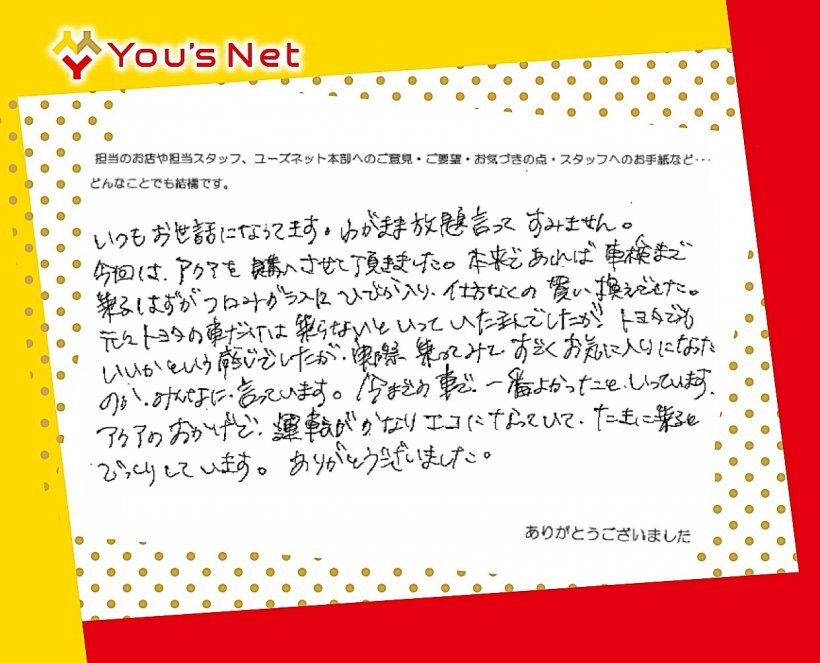 You's Net
担当のお店や担当スタッフ、ユーズネット本部へのご意見・ご要望・お気づきの点・スタッフへのお手紙など・・・
どんなことでも結構です。
いつもお世話になってます。わがまま放題言って すみません。
今回は、アクアを購入させて頂きました。本来であれば 車検まで
乗るはずがフロントガラスに ひびが入り、仕方なくの 買い換えでした。
元々トヨタの車だけは 乗らないといって いた主人でしたが、トヨタでも
いいかという感じでしたが、実際 乗ってみて すごくお気に入りになった
のか、みんなに言っています。今までの車で、一番よかったことを、いっています。
アクアのおかげで、運転がかなりエコになっていて、たまに乗ると
びっくりしています。 ありがとうございました。
ありがとうございました